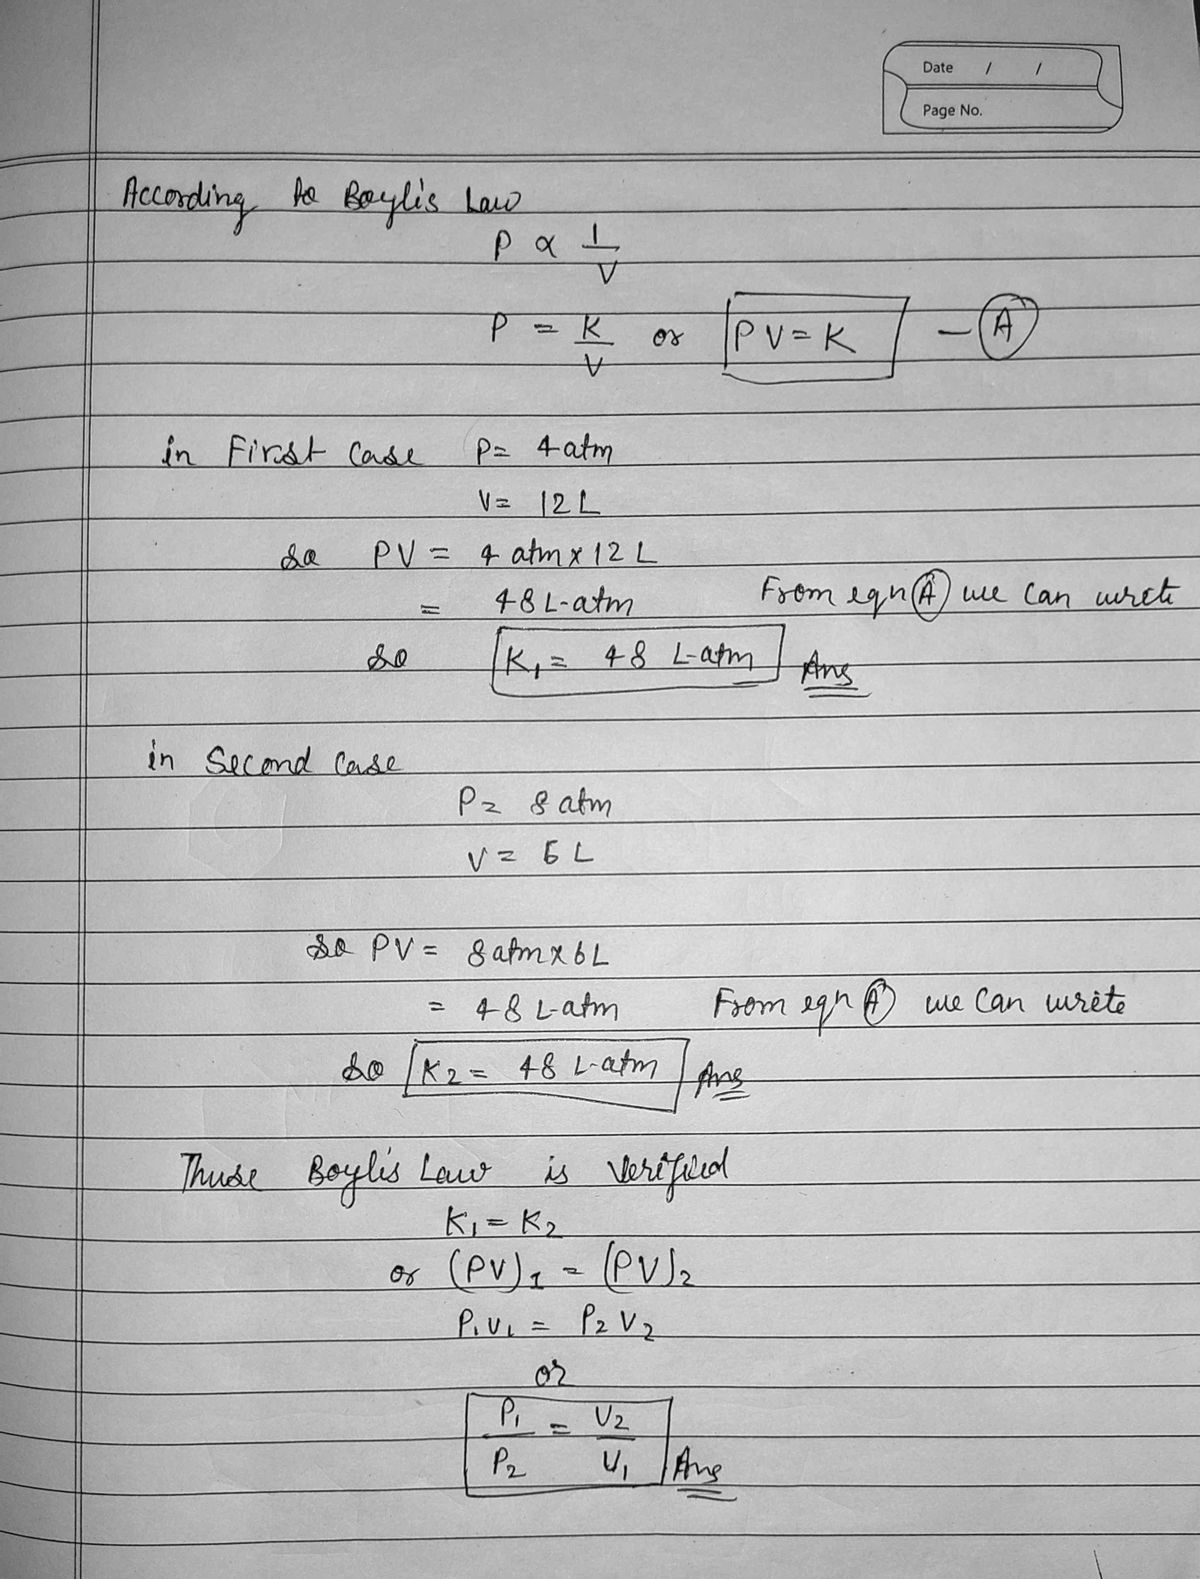 Date / /
Page No.
According to Boyli's Law
P ∝ 1/V
P = K/V or PV = K - (A)
in First Case P= 4 atm
V= 12 L
So PV = 4 atm x 12 L
= 48 L-atm From eqn (A) we can write
So K₁ = 48 L-atm Ans
in Second Case
P= 8 atm
V= 6 L
So PV = 8 atm x 6L
= 48 L-atm From eqn (A) we can write
So K2 = 48 L-atm Ans
Thuse Boyli's Law is verified
K₁ = K₂
or (PV)₁ = (PV)₂
P₁V₁ = P₂V₂
or
P₁/P₂ = V₂/V₁ Ans